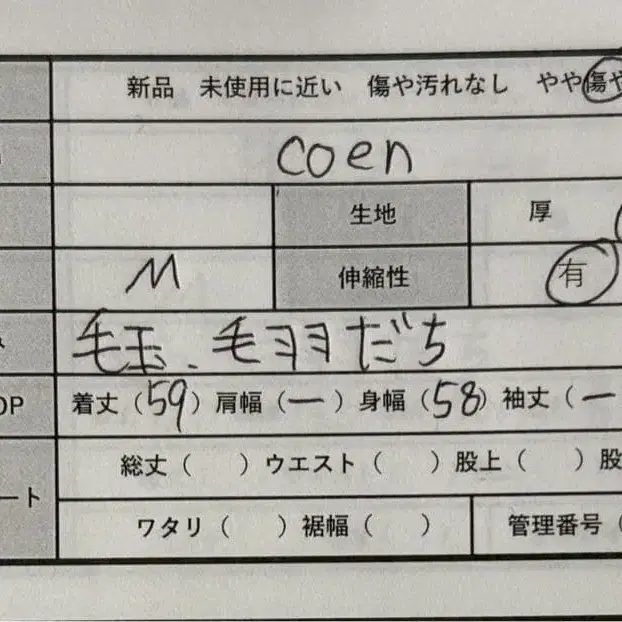 新品 未使用に近い 傷や汚れなし やや傷や
coen
生地 厚
M 伸縮性 有
毛玉、毛羽だち
OP 着丈(59) 肩幅(ー) 身幅(58) 袖丈(ー
総丈( ) ウエスト( ) 股上( ) 股
ート
ワタリ( ) 裾幅( ) 管理番号(